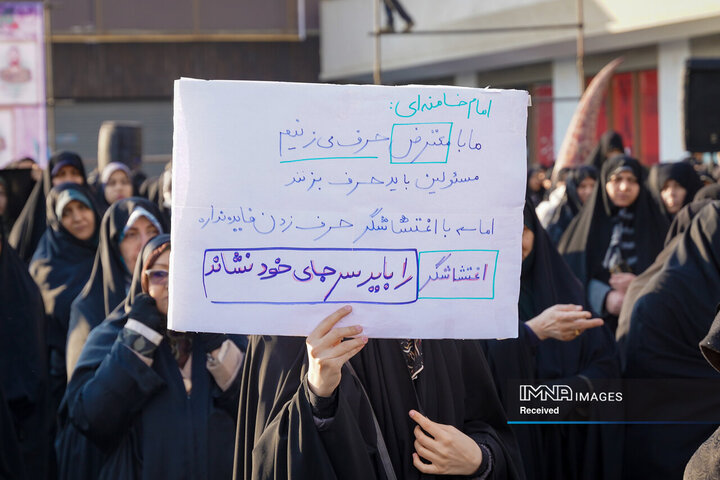 امام خامنه‌ای:
ما با معترض حرف می‌زنیم
مسئولین باید حرف بزنند
اما با اغتشاشگر حرف زدن فایده ندارد
اغتشاشگر را باید سر جای خود نشاند
IMNA IMAGES
Received